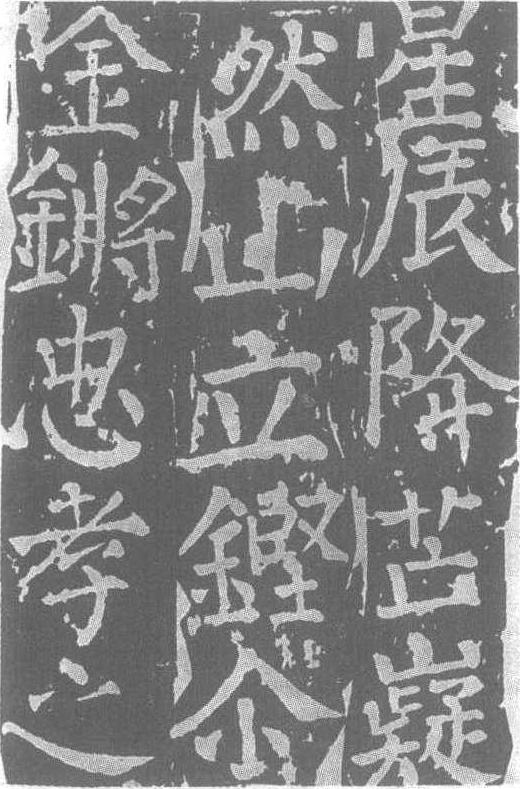 星辰降芒嶷
然山立鏗尒
金鏘忠孝之